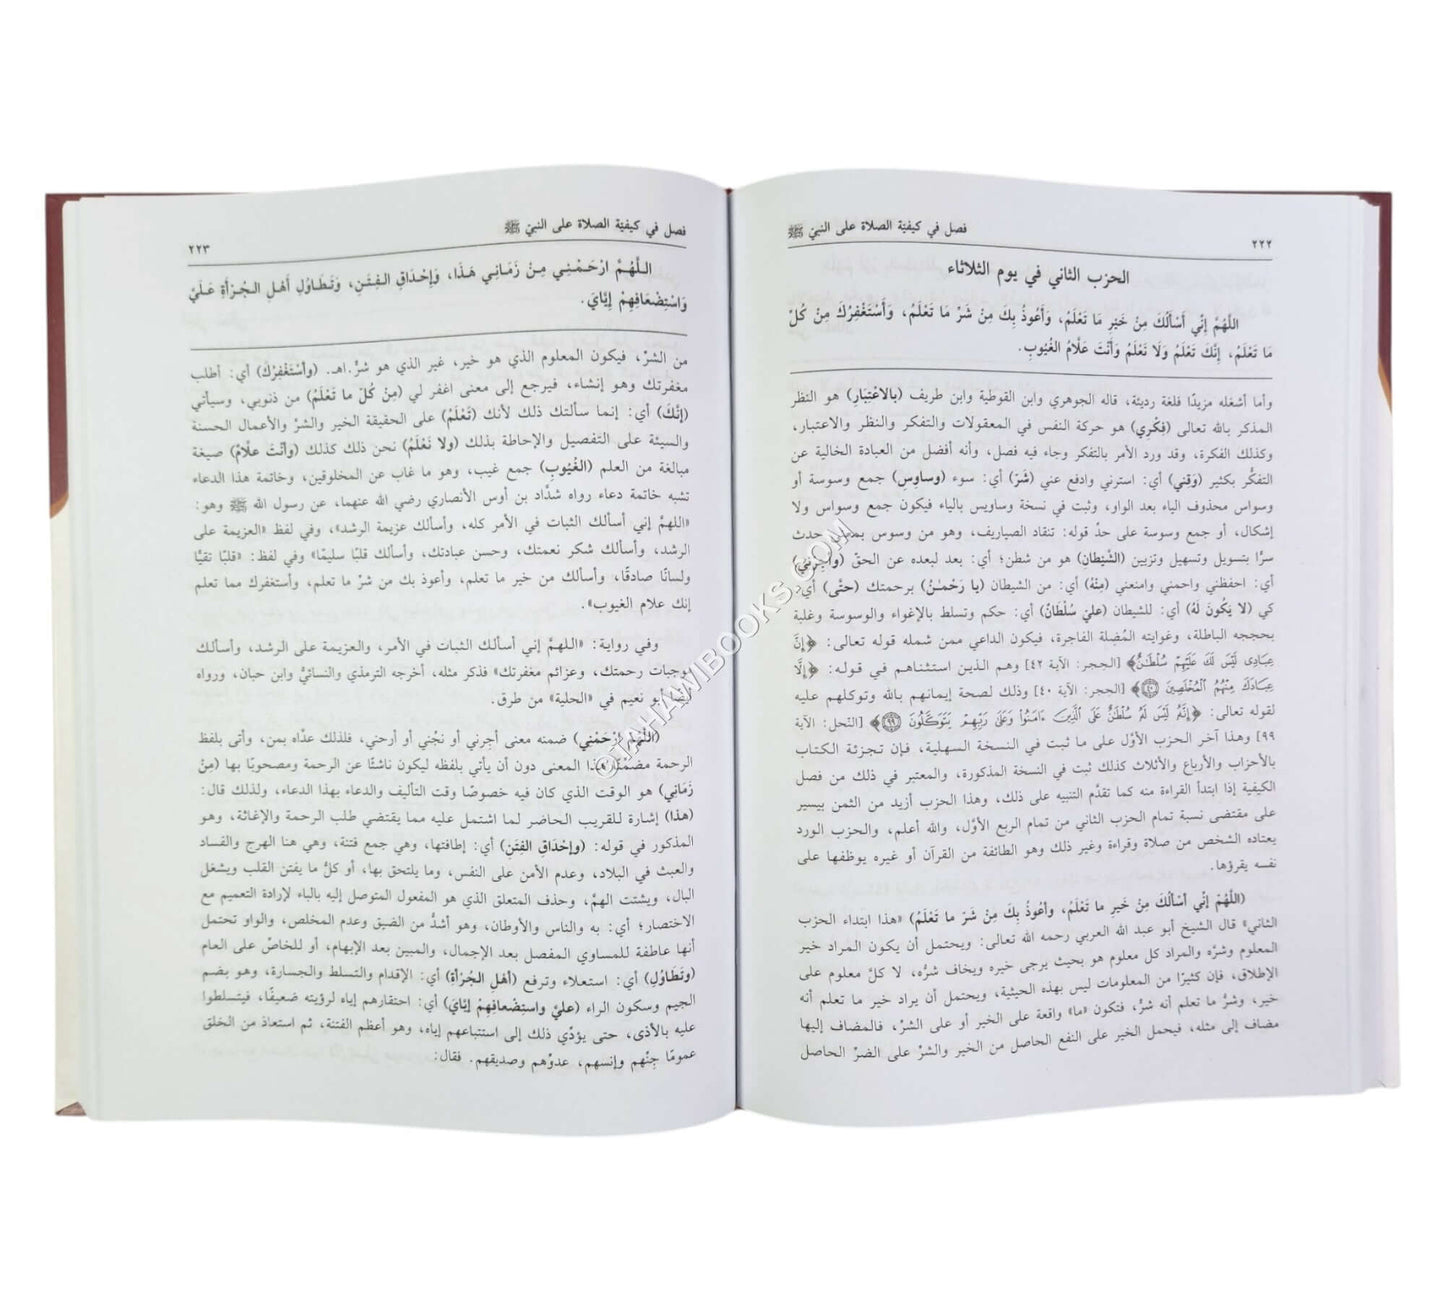 ٢٢٢
فصل في كيفيّة الصلاة على النبيّ ﷺ
الحزب الثاني في يوم الثلاثاء
اللَّهُمَّ إِنِّي أَسْأَلُكَ مِنْ خَيْرِ مَا تَعْلَمُ، وَأَعُوذُ بِكَ مِنْ شَرِّ مَا تَعْلَمُ، وَأَسْتَغْفِرُكَ مِنْ كُلِّ
مَا تَعْلَمُ، إِنَّكَ تَعْلَمُ وَلَا نَعْلَمُ وَأَنْتَ عَلَّامُ الغُيُوبِ.
وأما أشغله مزيدًا فلغة رديئة، قاله الجوهري وابن القوطية وابن طريف (بالاعْتِبَارِ) هو النظر
المذكر بالله تعالى (فِكْرِي) هو حركة النفس في المعقولات والتفكر والنظر والاعتبار،
وكذلك الفكرة، وقد ورد الأمر بالتفكر وجاء فيه فصل، وأنه أفضل من العبادة الخالية عن
التفكُّر بكثير (وَقِني) أي: استرني وادفع عني (شَرَّ) أي: سوء (وساوِسِ) جمع وسوسة أو
وسواس محذوف الياء بعد الواو، وثبت في نسخة وساويس بالياء فيكون جمع وسواس ولا
إشكال، أو جمع وسوسة على حدّ قوله: تنقاد الصياريف، وهو من وسوس حدث
سرًّا بتسويل وتسهيل وتزيين (الشَّيْطان) هو من شطن؛ أي: بعد لبعده عن الحقّ (وأجِرني)
أي: احفظني واحمني وامنعني (مِنْهُ) أي: من الشيطان (يا رَحْمـٰنُ) برحمتك (حتّى) أي:
كي (لا يَكُونَ لَهُ) أي: للشيطان (عليّ سُلْطَانٌ) أي: حكم وتسلط بالإغواء والوسوسة وغلبة
بحججه الباطلة، وغوايته المُضِلة الفاجرة، فيكون الداعي ممن شمله قوله تعالى: ﴿إِنَّ
عِبَادِى لَيْسَ لَكَ عَلَيْهِمْ سُلْطَـٰنٌ﴾ [الحجر: الآية ٤٢] وهم الذين استثناهم في قوله: ﴿إِلَّا
عِبَادَكَ مِنْهُمُ الْمُخْلَصِينَ ﴿٤٠﴾﴾ [الحجر: الآية ٤٠] وذلك لصحة إيمانهم بالله وتوكلهم عليه
لقوله تعالى: ﴿إِنَّهُ لَيْسَ لَهُ سُلْطَـٰنٌ عَلَى الَّذِينَ ءَامَنُوا وَعَلَىٰ رَبِّهِمْ يَتَوَكَّلُونَ ﴿٩٩﴾﴾ [النّحل: الآية
٩٩] وهذا آخر الحزب الأوّل على ما ثبت في النسخة السهلية، فإن تجزئة الكتاب
بالأحزاب والأرباع والأثلاث كذلك ثبت في النسخة المذكورة، والمعتبر في ذلك من فصل
الكيفية إذا ابتدأ القراءة منه كما تقدَّم التنبيه على ذلك، وهذا الحزب أزيد من الثمن بيسير
على مقتضى نسبة تمام الحزب الثاني من تمام الربع الأوَّل، والله أعلم، والحزب الورد
يعتاده الشخص من صلاة وقراءة وغير ذلك وهو الطائفة من القرآن أو غيره يوظفها على
نفسه يقرؤها.
(اللَّهُمَّ إِنِّي أسْألُكَ مِنْ خَيرِ ما تَعْلَمُ، وأعُوذُ بِكَ مِنْ شَرّ ما تَعْلَمُ) «هذا ابتداء الحزب
الثاني» قال الشيخ أبو عبد الله العربي رحمه الله تعالى: ويحتمل أن يكون المراد خير
المعلوم وشرَّه والمراد كل معلوم هو بحيث يرجى خيره ويخاف شرُّه، لا كلّ معلوم على
الإطلاق، فإن كثيرًا من المعلومات ليس بهذه الحيثية، ويحتمل أن يراد خير ما تعلم أنه
خير، وشرُّ ما تعلم أنه شرٌّ، فتكون «ما» واقعة على الخير أو على الشرّ، فالمضاف إليها
مضاف إلى مثله، فيحمل الخير على النفع الحاصل من الخير والشرّ على الضرّ الحاصل
فصل في كيفيّة الصلاة على النبيّ ﷺ
٢٢٣
اللَّهُمَّ ارْحَمْنِي مِنْ زَمَانِي هَذَا، وَإِحْدَاقِ الفِتَنِ، وَتَطَاوُلِ أَهْلِ الجُرْأَةِ عَلَيَّ
وَاسْتِضْعَافِهِمْ إِيَّايَ.
من الشرّ، فيكون المعلوم الذي هو خير، غير الذي هو شرٌّ.اهـ. (وأسْتَغْفِرُكَ) أي: أطلب
مغفرتك وهو إنشاء، فيرجع إلى معنى اغفر لي (مِنْ كُلِّ ما تَعْلَمُ) من ذنوبي، وسيأتي
(إنَّكَ) أي: إنما سألتك ذلك لأنك (تَعْلَمُ) على الحقيقة الخير والشرّ والأعمال الحسنة
والسيئة على التفصيل والإحاطة بذلك (ولا نَعْلَمُ) نحن ذلك كذلك (وأنْتَ علّامُ) صيغة
مبالغة من العلم (الغُيُوبِ) جمع غيب، وهو ما غاب عن المخلوقين، وخاتمة هذا الدعاء
تشبه خاتمة دعاء رواه شدَّاد بن أوس الأنصاري رضي الله عنهما، عن رسول الله ﷺ وهو:
«اللهمَّ إني أسألك الثبات في الأمر كله، وأسألك عزيمة الرشد»، وفي لفظ «العزيمة على
الرشد، وأسألك شكر نعمتك، وحسن عبادتك، وأسألك قلبًا سليمًا» وفي لفظ: «قلبًا تقيًّا
ولسانًا صادقًا، وأسألك من خير ما تعلم، وأعوذ بك من شرّ ما تعلم، وأستغفرك مما تعلم
إنك علام الغيوب».
وفي رواية: «اللهمَّ إني أسألك الثبات في الأمر، والعزيمة على الرشد، وأسألك
موجبات رحمتك، وعزائم مغفرتك» فذكر مثله، أخرجه الترمذي والنسائيُّ وابن حبان، ورواه
أبو نعيم في «الحلية» من طرق.
(اللَّهُمَّ ارْحَمْنِي) ضمنه معنى أجِرني أو نجّني أو أرحني، فلذلك عدّاه بمن، وأتى بلفظ
الرحمة مضمّنًا هذا المعنى دون أن يأتي بلفظه ليكون ناشئًا عن الرحمة ومصحوبًا بها (مِنْ
زَمَانِي) هو الوقت الذي كان فيه خصوصًا وقت التأليف والدعاء بهذا الدعاء، ولذلك قال:
(هذا) إشارة للقريب الحاضر لما اشتمل عليه مما يقتضي طلب الرحمة والإغاثة، وهو
المذكور في قوله: (وإحْدَاقِ الفِتَنِ) أي: إطافتها، وهي جمع فتنة، وهي هنا الهرج والفساد
والعبث في البلاد، وعدم الأمن على النفس، وما يلتحق بها، أو كلُّ ما يفتن القلب ويشغل
البال، ويشتت الهمّ، وحذف المتعلق الذي هو المفعول المتوصل إليه بالباء لإرادة التعميم مع
الاختصار؛ أي: به والناس والأوطان، وهو أشدُّ من الضيق وعدم المخلص، والواو تحتمل
أنها عاطفة للمساوي المفصل بعد الإجمال، والمبين بعد الإبهام، أو للخاصّ على العام
(وتَطَاوُلِ) أي: استعلاء وترفع (أهلِ الجُرْأةِ) أي: الإقدام والتسلط والجسارة، وهو بضم
الجيم وسكون الراء (عليَّ واستِضْعافِهِمْ إيّايَ) أي: احتقارهم إياه لرؤيته ضعيفًا، فيتسلطوا
عليه بالأذى، حتى يؤدّي ذلك إلى استتباعهم إياه، وهو أعظم الفتنة، ثم استعاذ من الخلق
عمومًا جنّهم وإنسهم، عدوّهم وصديقهم. فقال:
©TAHAWIBOOKS.COM